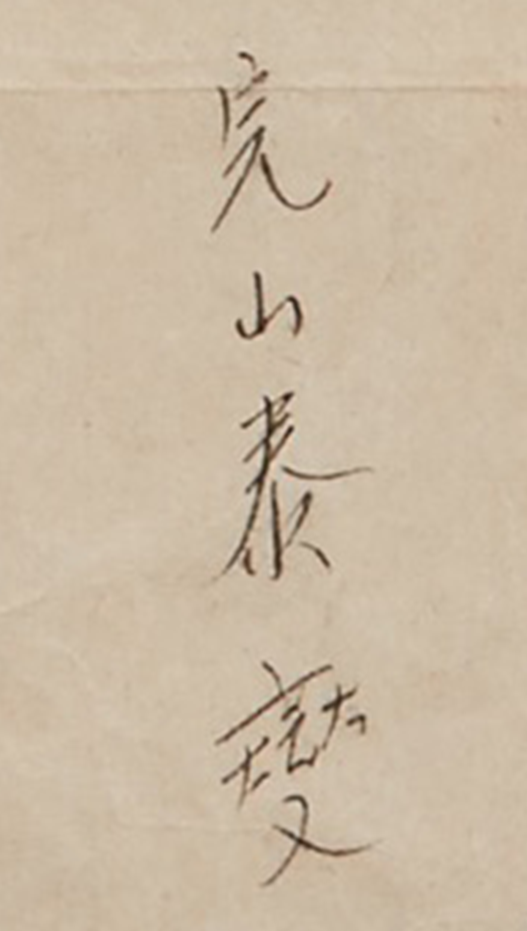 完山泰燮